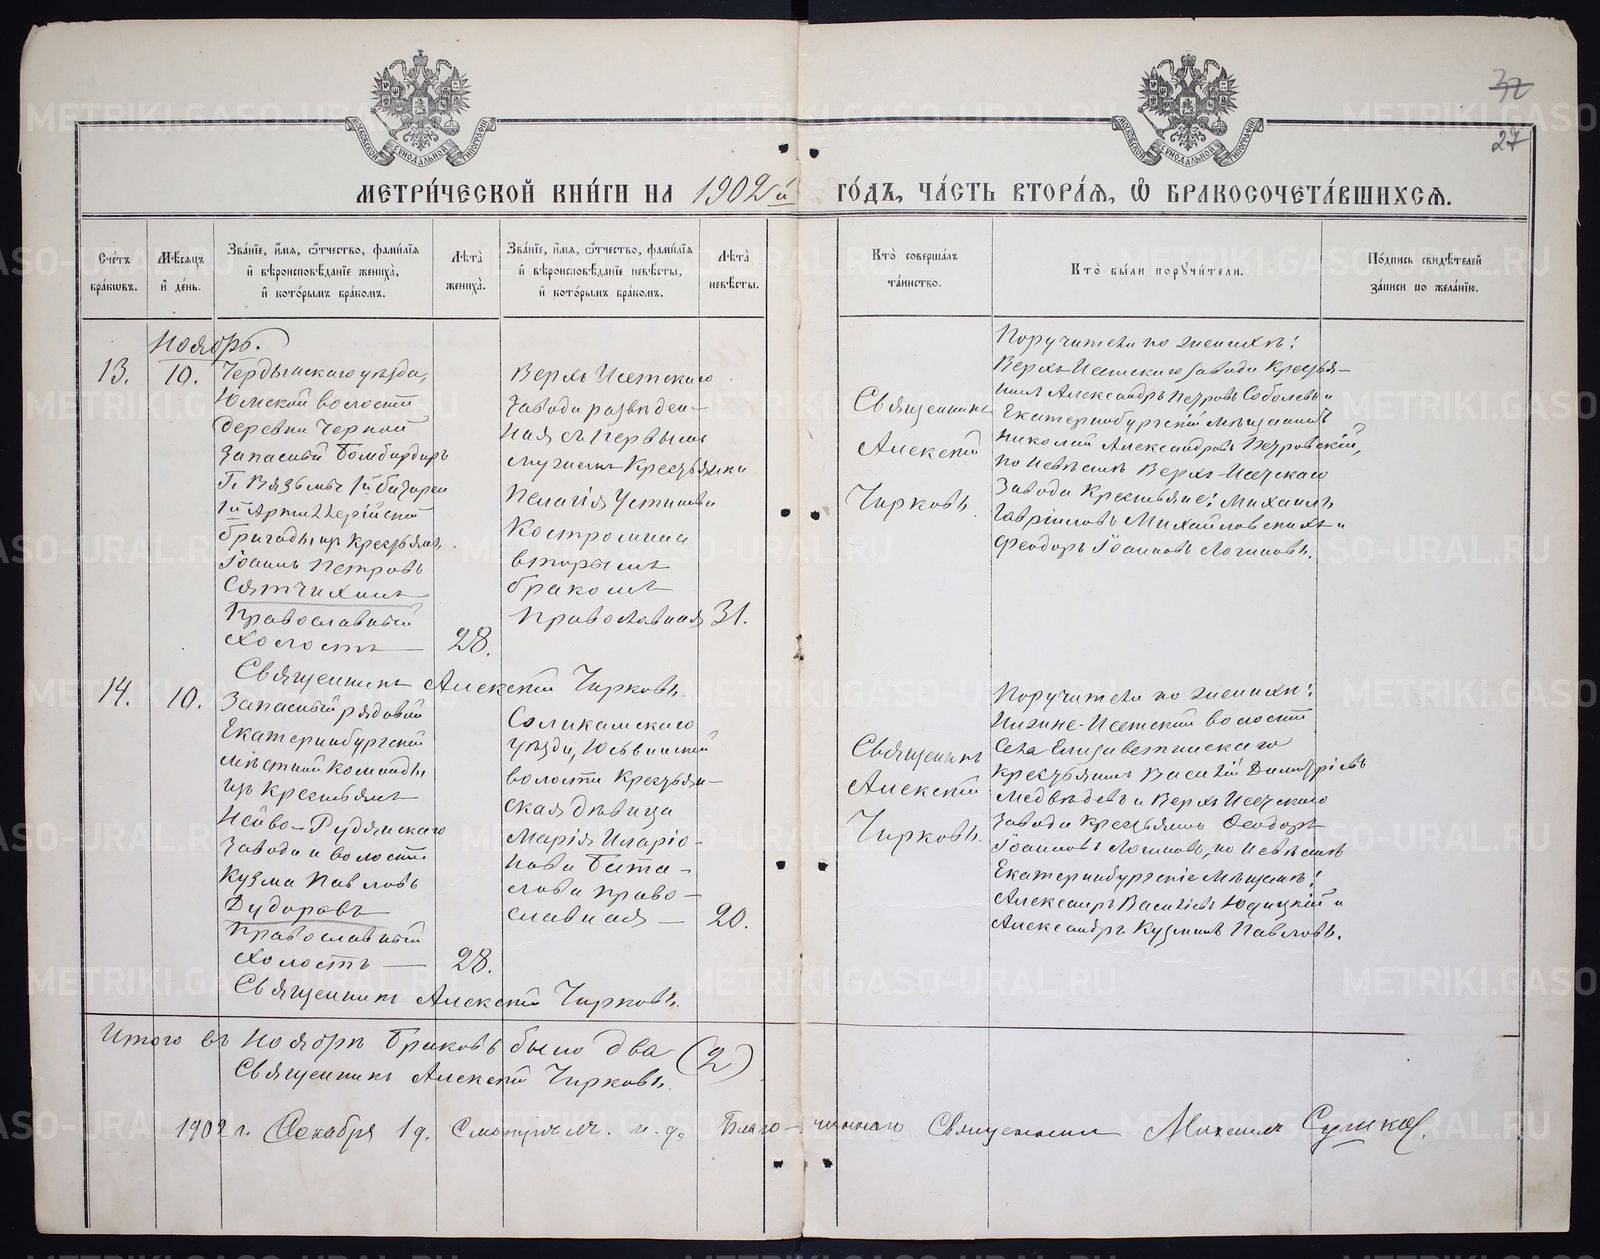 32
27
МЕТРИ́ЧЕСКОЙ КНИ́ГИ НА 1902й ГО́ДЪ, ЧА́СТЬ ВТОРА́Я, Ѡ БРАКОСОЧЕТА́ВШИХСЯ.
Сче́тъ бра́ковъ.
Мѣ́сяцъ и҆ де́нь.
Зва́нїе, и҆́мя, ѻ҆́тчество, фами́лїя и҆ вѣроисповѣ́данїе жениха̀, и҆ кото́рымъ бра́комъ.
Лѣта̀ жениха̀.
Зва́нїе, и҆́мя, ѻ҆́тчество, фами́лїя и҆ вѣроисповѣ́данїе невѣ́сты, и҆ кото́рымъ бра́комъ.
Лѣта̀ невѣ́сты.
Кто̀ соверша́лъ та́инство.
Кто̀ бы́ли поручи́тели.
По́дпись свидѣ́телей за́писи по жела́нїю.
Ноябрь.
13.
10.
Чердынскаго уѣзда,
Юмской волости
деревни Черной
запасный Бомбардиръ
Г. Вязьмы 1й батареи
1й Артиллерійской
бригады, из крестьянъ
Іоаннъ Петровъ
Сятчихинъ
Православный
холостъ
28.
Верхъ-Исетскаго
завода разведен-
ная съ первымъ
мужемъ Крестьянка
Пелагія Устинова
Костромина
вторымъ
бракомъ
Православная
31.
Священникъ
Алексій
Чирковъ
Поручители по женихѣ:
Верхъ-Исетскаго завода Крестья-
нинъ Александръ Петровъ Соболевъ и
Екатеринбургскій мѣщанинъ
Николай Александровъ Петровскій,
по Невѣстѣ Верхъ-Исетскаго
завода Крестьяне: Михаилъ
Гавріиловъ Михайловскихъ и
Феодоръ Іоанновъ Логиновъ.
Священникъ Алексій Чирковъ.
14.
10.
Запасный рядовой
Екатеринбургской
мѣстной Команды
изъ Крестьянъ
Нейво-Рудянскаго
завода и волости
Кузма Павловъ
Дудоровъ
Православный
холостъ
28.
Соликамскаго
уѣзда, Юсьвинской
волости Крестьян-
ская дѣвица
Марія Иларіо-
нова Бата-
лова Право-
славная
20.
Священникъ
Алексій
Чирковъ.
Поручители по женихѣ:
Нижне-Исетской волости
Села Елизаветинскаго
Крестьянинъ Василій Димитріевъ
Медвѣдевъ и Верхъ Исетскаго
завода Крестьянинъ Феодоръ
Іоанновъ Логиновъ, по Невѣстѣ
Екатеринбургскіе мѣщане:
Александръ Василіевъ Юдицкій и
Александръ Кузминъ Павловъ.
Священникъ Алексій Чирковъ.
Итого въ Ноябрѣ Браковъ было два (2)
Священникъ Алексій Чирковъ.
1902 г. Декабря 1 д. Смотрѣлъ. и. д. Благочиннаго Священникъ Михаилъ